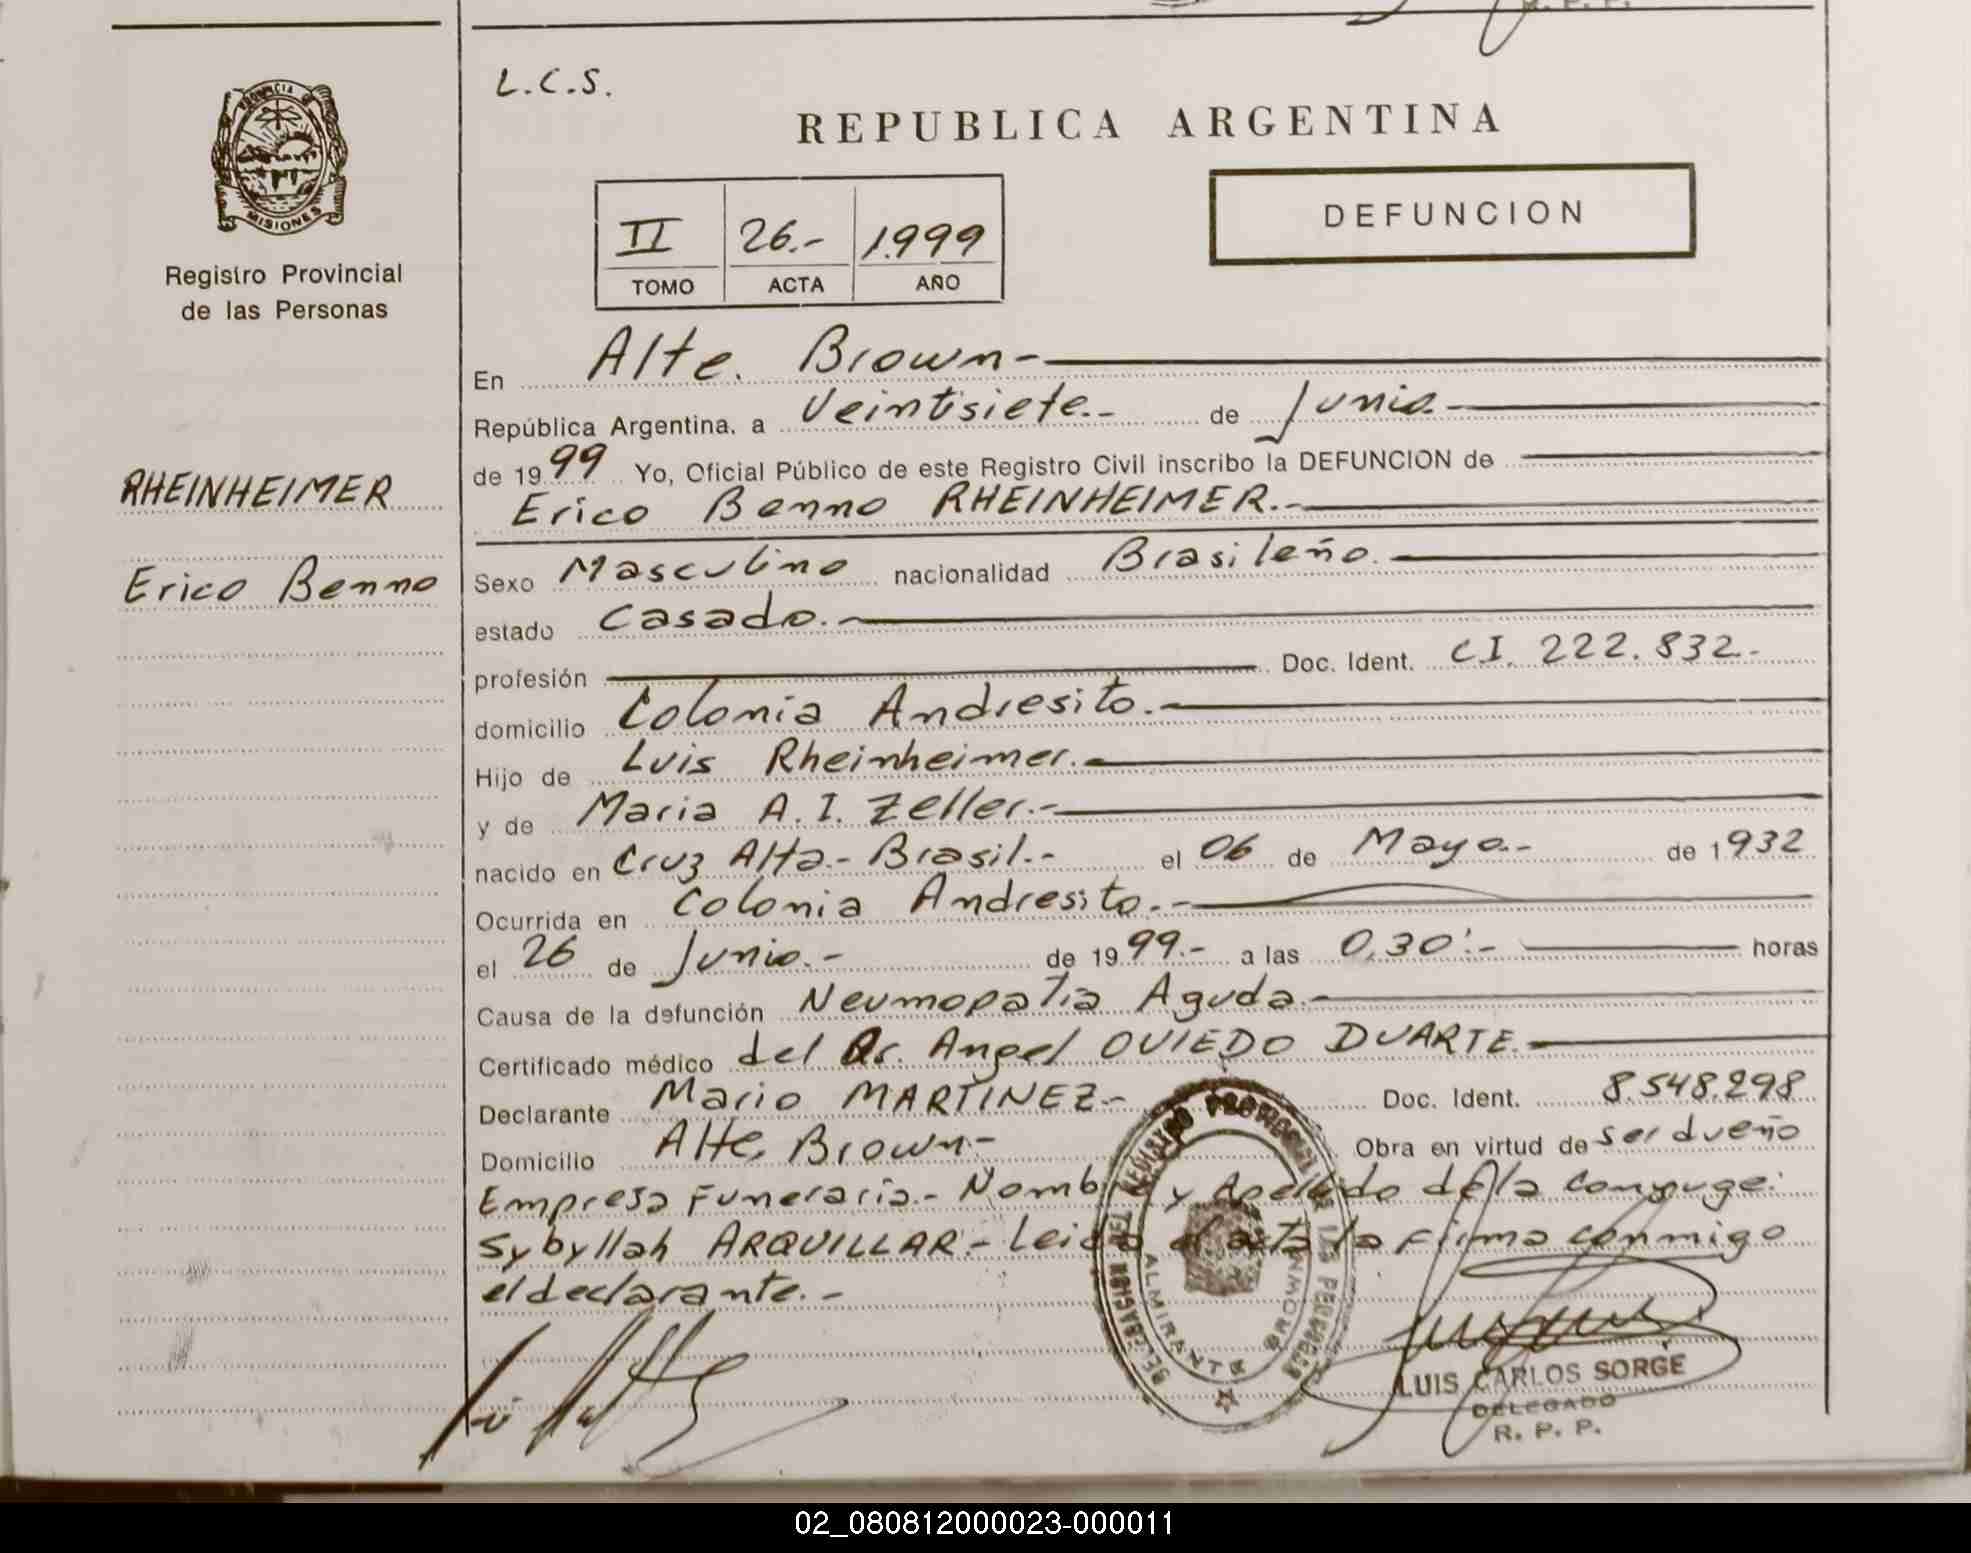 L.C.S.
PROVINCIA DE
MISIONES
Registro Provincial
de las Personas
REPUBLICA ARGENTINA
DEFUNCION
II 26.- 1.999
TOMO ACTA AÑO
En Alte. Brown-
República Argentina, a Veintisiete.- de Junio.-
de 1999 Yo, Oficial Público de este Registro Civil inscribo la DEFUNCION de
RHEINHEIMER
Erico Benno RHEINHEIMER.-
Erico Benno
Sexo Masculino nacionalidad Brasileño.-
estado Casado.-
profesión Doc. Ident. CI. 222.832.-
domicilio Colonia Andresito.-
Hijo de Luis Rheinheimer.-
y de Maria A.I. Zeller.-
nacido en Cruz Alta.- Brasil.- el 06 de Mayo.- de 1932
Ocurrida en Colonia Andresito.-
el 26 de Junio.- de 1999.- a las 0,30:- horas
Causa de la defunción Neumopatia Aguda.-
Certificado médico del Dr. Angel OVIEDO DUARTE.-
Declarante Mario MARTINEZ- Doc. Ident. 8.548.298
Domicilio Alte. Brown- Obra en virtud de ser dueño
Empresa Funeraria.- Nombre y Apellido de la Conyuge:
Sybyllah ARQUILLAR.- Leida el acta la firma conmigo
el declarante.-
DELEGACION DEL REGISTRO PROVINCIAL DE LAS PERSONAS
ALMIRANTE BROWN
LUIS CARLOS SORGE
DELEGADO
R. P. P.
02_080812000023-000011